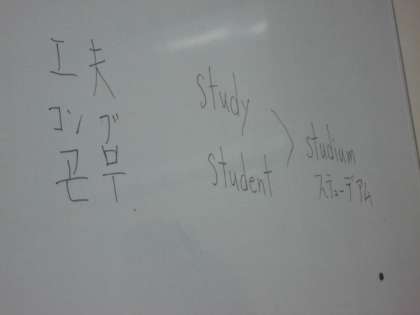 工夫
コンブ
공부
study
student
studium
ステューデアム